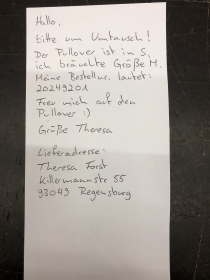 Hallo,
bitte um Umtausch!
Der Pullover ist in S,
ich bräuchte Größe M.
Meine Bestellnr. lautet:
20249201
Freu mich auf den
Pullover :)
Grüße Theresa
Lieferadresse:
Theresa Forst
Killermannstr 55
93049 Regensburg